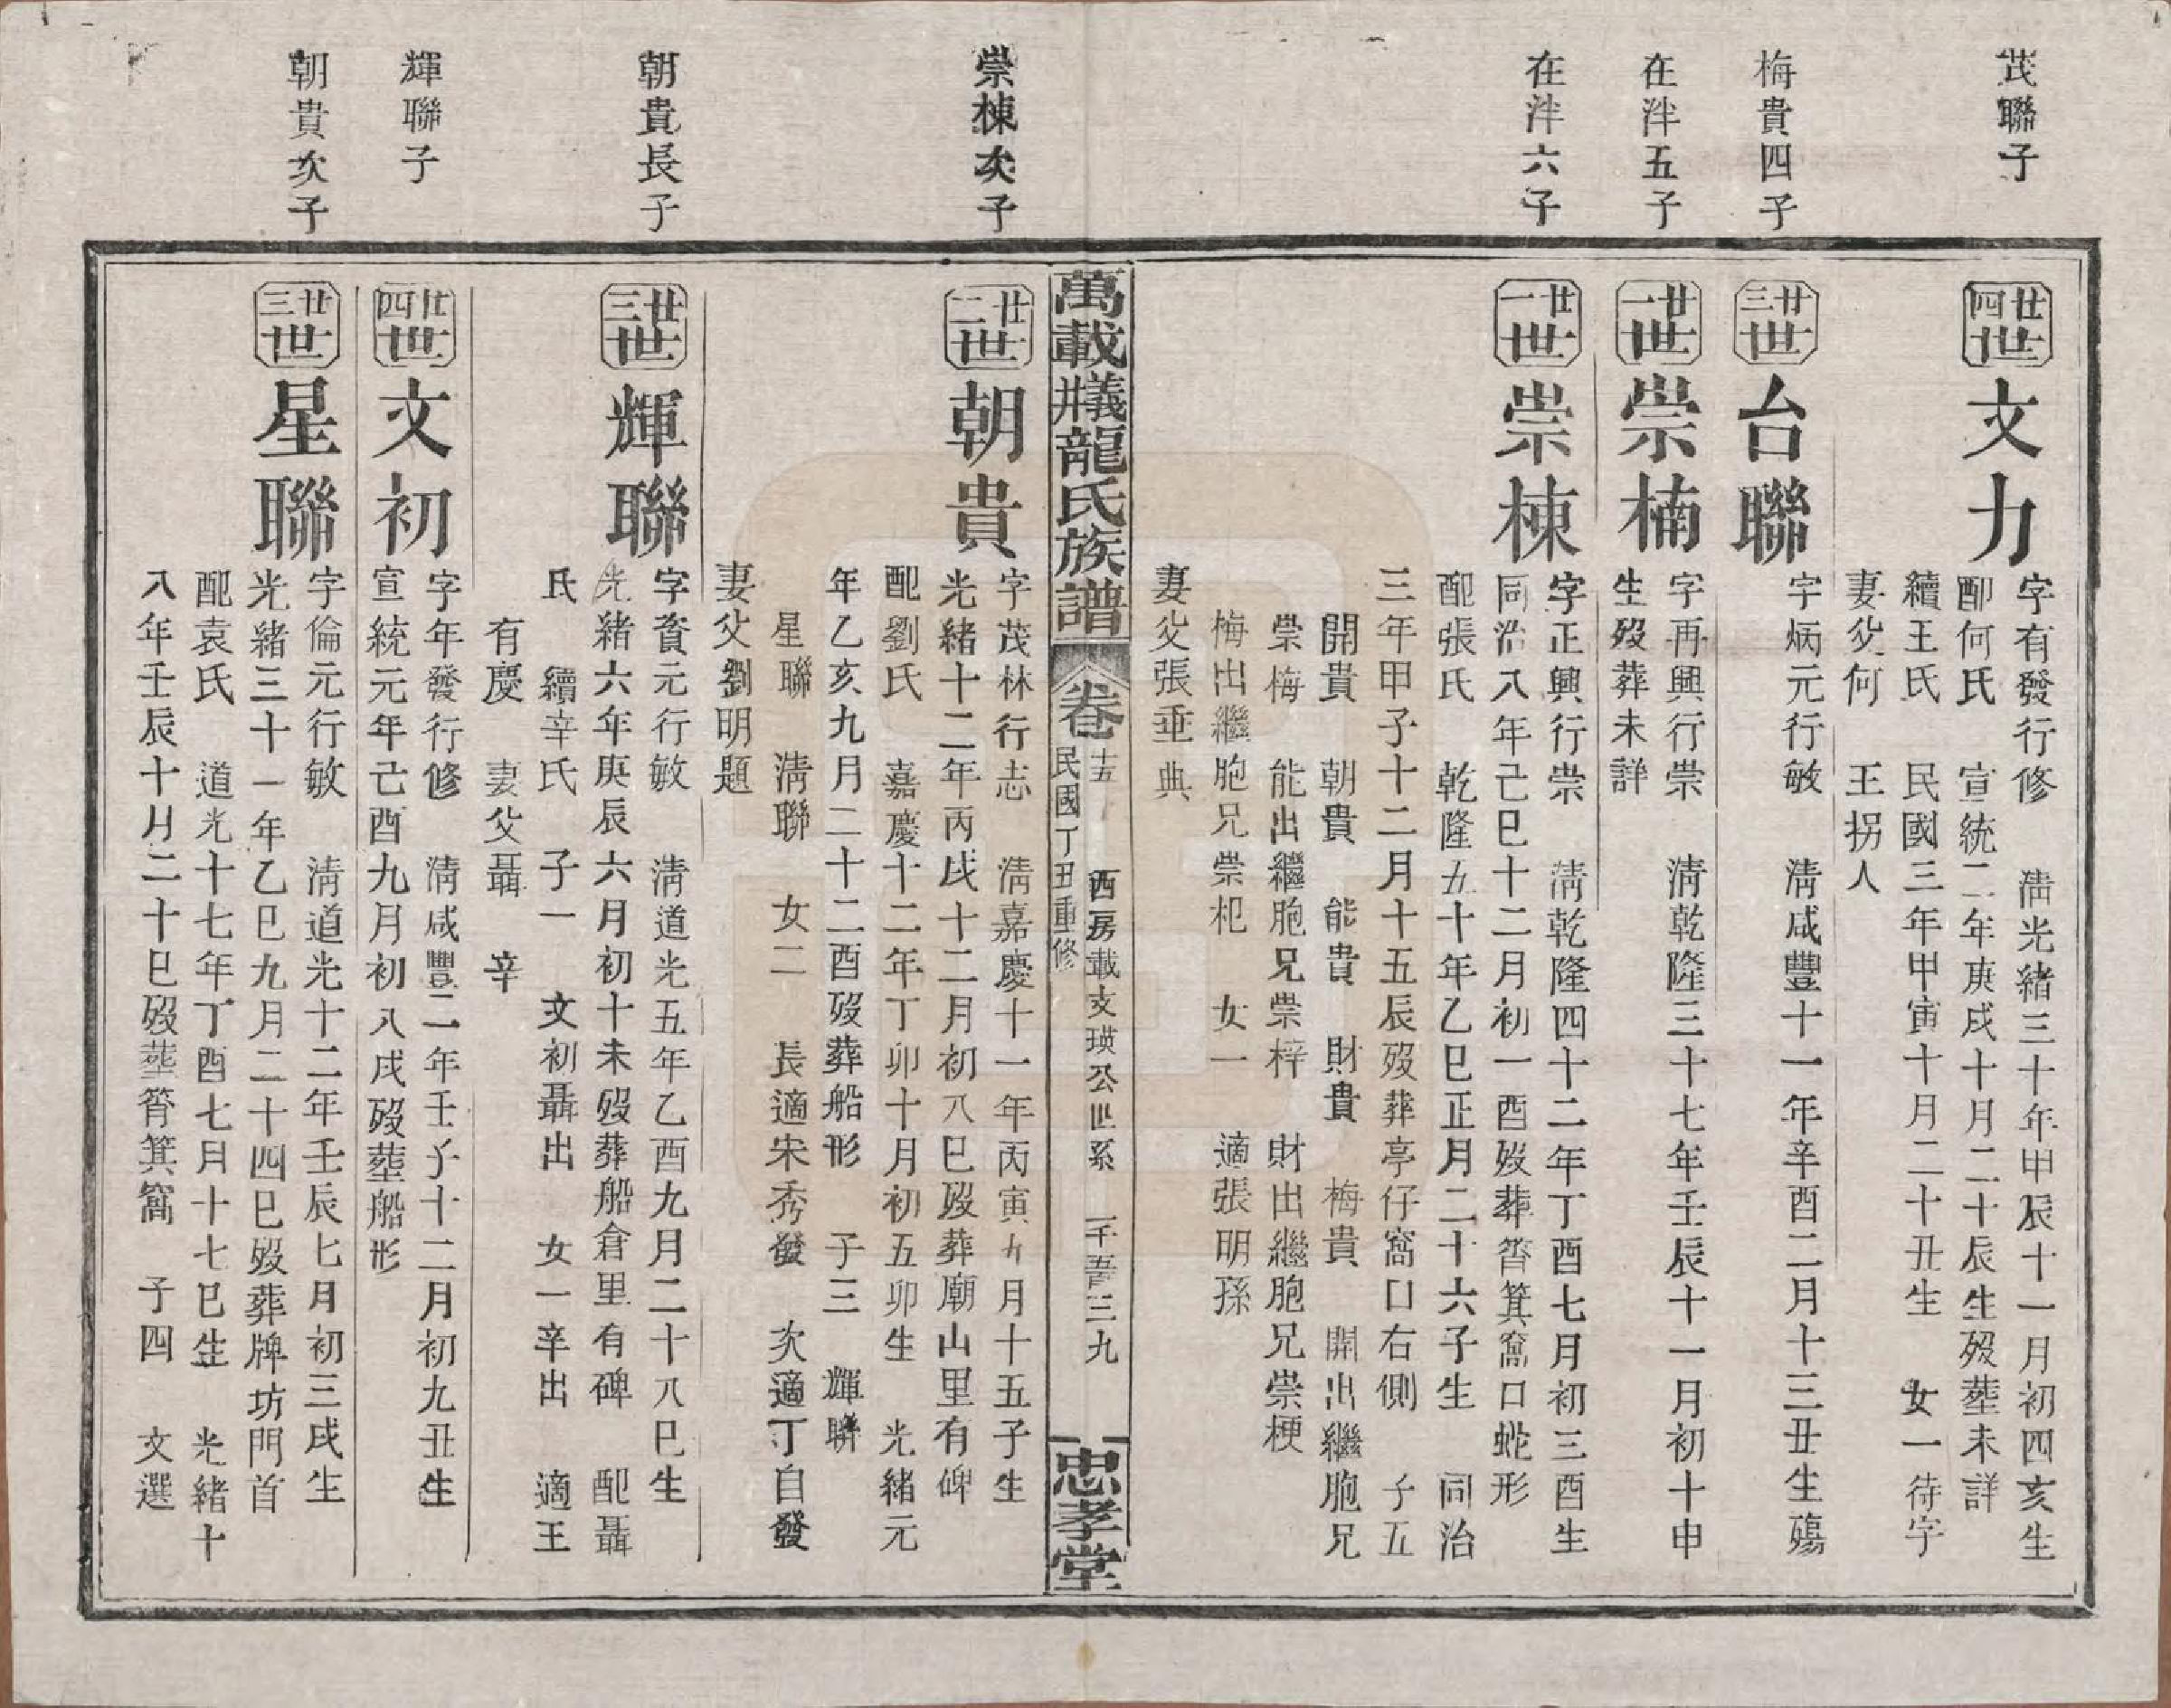 茂聯子
廿四世
文力
字有發行修　清光緒三十年甲辰十一月初四亥生
配何氏　宣統二年庚戌十月二十辰生歿塟未詳
續王氏　民國三年甲寅十月二十丑生　女一待字
妻父何　王拐人
梅貴四子
廿三世
台聯
字炳元行敏　清咸豐十一年辛酉二月十三丑生殤
在泮五子
廿一世
崇楠
字再興行崇　清乾隆三十七年壬辰十一月初十申
生歿葬未詳
在泮六子
廿一世
崇棟
字正興行崇　清乾隆四十二年丁酉七月初三酉生
同治八年己巳十二月初一酉歿葬筲箕窩口蛇形
配張氏　乾隆五十年乙巳正月二十六子生　同治
三年甲子十二月十五辰歿葬亭仔窩口右側　子五
開貴　朝貴　能貴　財貴　梅貴　開出繼胞兄
崇梅　能出繼胞兄崇梓　財出繼胞兄崇梗
梅出繼胞兄崇杞　女一　適張明孫
妻父張垂典
萬載井義龍氏族譜
卷
十五
民國丁丑重修
西房載支瑛公世系　一千三九
忠孝堂
崇棟次子
廿二世
朝貴
字茂林行志　清嘉慶十一年丙寅九月十五子生
光緒十二年丙戌十二月初八巳歿葬廟山里有碑
配劉氏　嘉慶十二年丁卯十月初五卯生　光緒元
年乙亥九月二十二酉歿葬船形　子三　輝聯
星聯　清聯　女二　長適宋秀發　次適丁自發
妻父劉明題
朝貴長子
廿三世
輝聯
字資元行敏　清道光五年乙酉九月二十八巳生
光緒六年庚辰六月初十未歿葬船倉里有碑　配聶
氏　續辛氏　子一　文初聶出　女一辛出　適王
有慶　妻父聶　辛
輝聯子
廿四世
文初
字年發行修　清咸豐二年壬子十二月初九丑生
宣統元年己酉九月初八戌歿塟船形
朝貴次子
廿三世
星聯
字倫元行敏　清道光十二年壬辰七月初三戌生
光緒三十一年乙巳九月二十四巳歿葬牌坊門首
配袁氏　道光十七年丁酉七月十七巳生　光緒十
八年壬辰十月二十巳歿塟筲箕窩　子四　文選